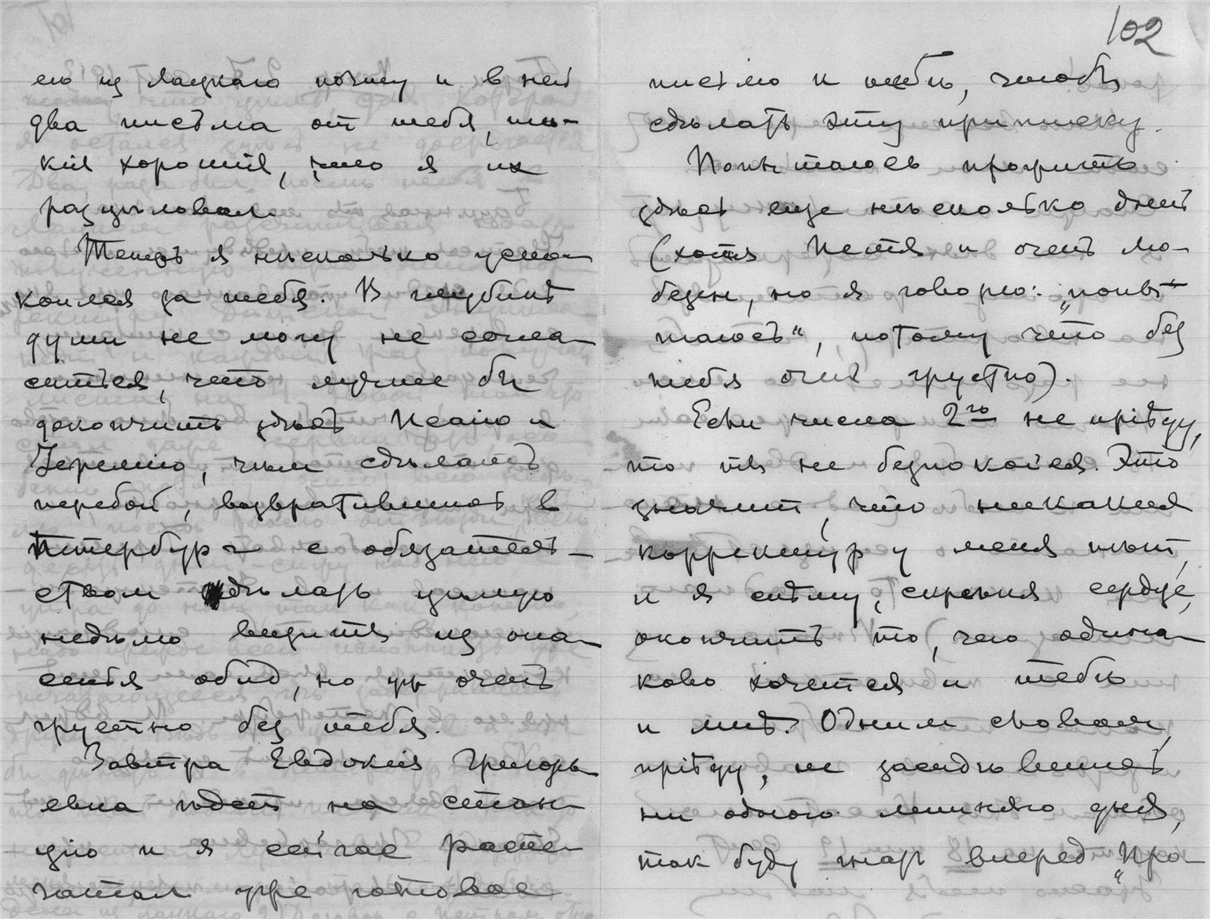 ею из Лацкаго почту и в ней
два письма от тебя, та-
кія хорошія, что я их
разцѣловал.
Теперь я нисколько успо-
коился за тебя. В глубинѣ
души не могу не согла-
ситься, что лучше бы
докончить здѣсь Исаію и
Іеремію, чѣм сдѣлать
перебой, возвратившись в
Петербург с обязатель-
ством сдѣлать цѣлую
недѣлю визиты из опа-
сенья обид, но уж очень
грустно без тебя.
Завтра Евдокія Григорь-
евна ѣдет на стан-
цію и я сейчас распе-
чатал уже готовое
102
письмо к тебѣ, чтобы
сдѣлать эту приписку.
Попытаюсь прожить
здѣсь еще нѣсколько дней
(хотя Петя и очень лю-
безен, но я говорю: „попы-
таюсь“, потому что без
тебя очень грустно).
Если числа 2го не пріѣду,
то ты не безпокойся. Это
значит, что никаких
корректур у меня нѣт,
и я сижу, скрѣпя сердце,
окончить то, чего одина-
ково хочется и тебѣ
и мнѣ. Одним словом,
пріѣду, не засидѣвшись
ни одного лишняго дня,
так буду гнать вперед „Про-